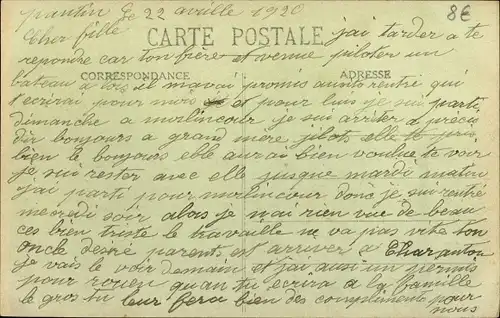 pantin le 22 avrille 1920
8€
Cher fille
CARTE POSTALE
jai tarder a te
repondre car ton frère et venue piloter un
bateau a il mavai promis ausito rentré qui
CORRESPONDANCE
ADRESSE
tecrirai pour moi et pour luis je sui parti
dimanche a molincour je sui arriter a précis
dir bonjours a grand mère elle
bien le bonjours elle aurai bien voulue te voir
je sui rester avec elle jusque mardi matin
jai parti pour molincour donc je sui rentré
mardi soir alors je nai rien vue de beau
ces bien triste le travaille ne va pas vite ton
oncle désiré parents est arriver a Charanton
je vais le voir demain et jai ausi un permis
pour rouen quan tu ecrira a la famille
le gros tu leur fera bien des compliments pour
nous